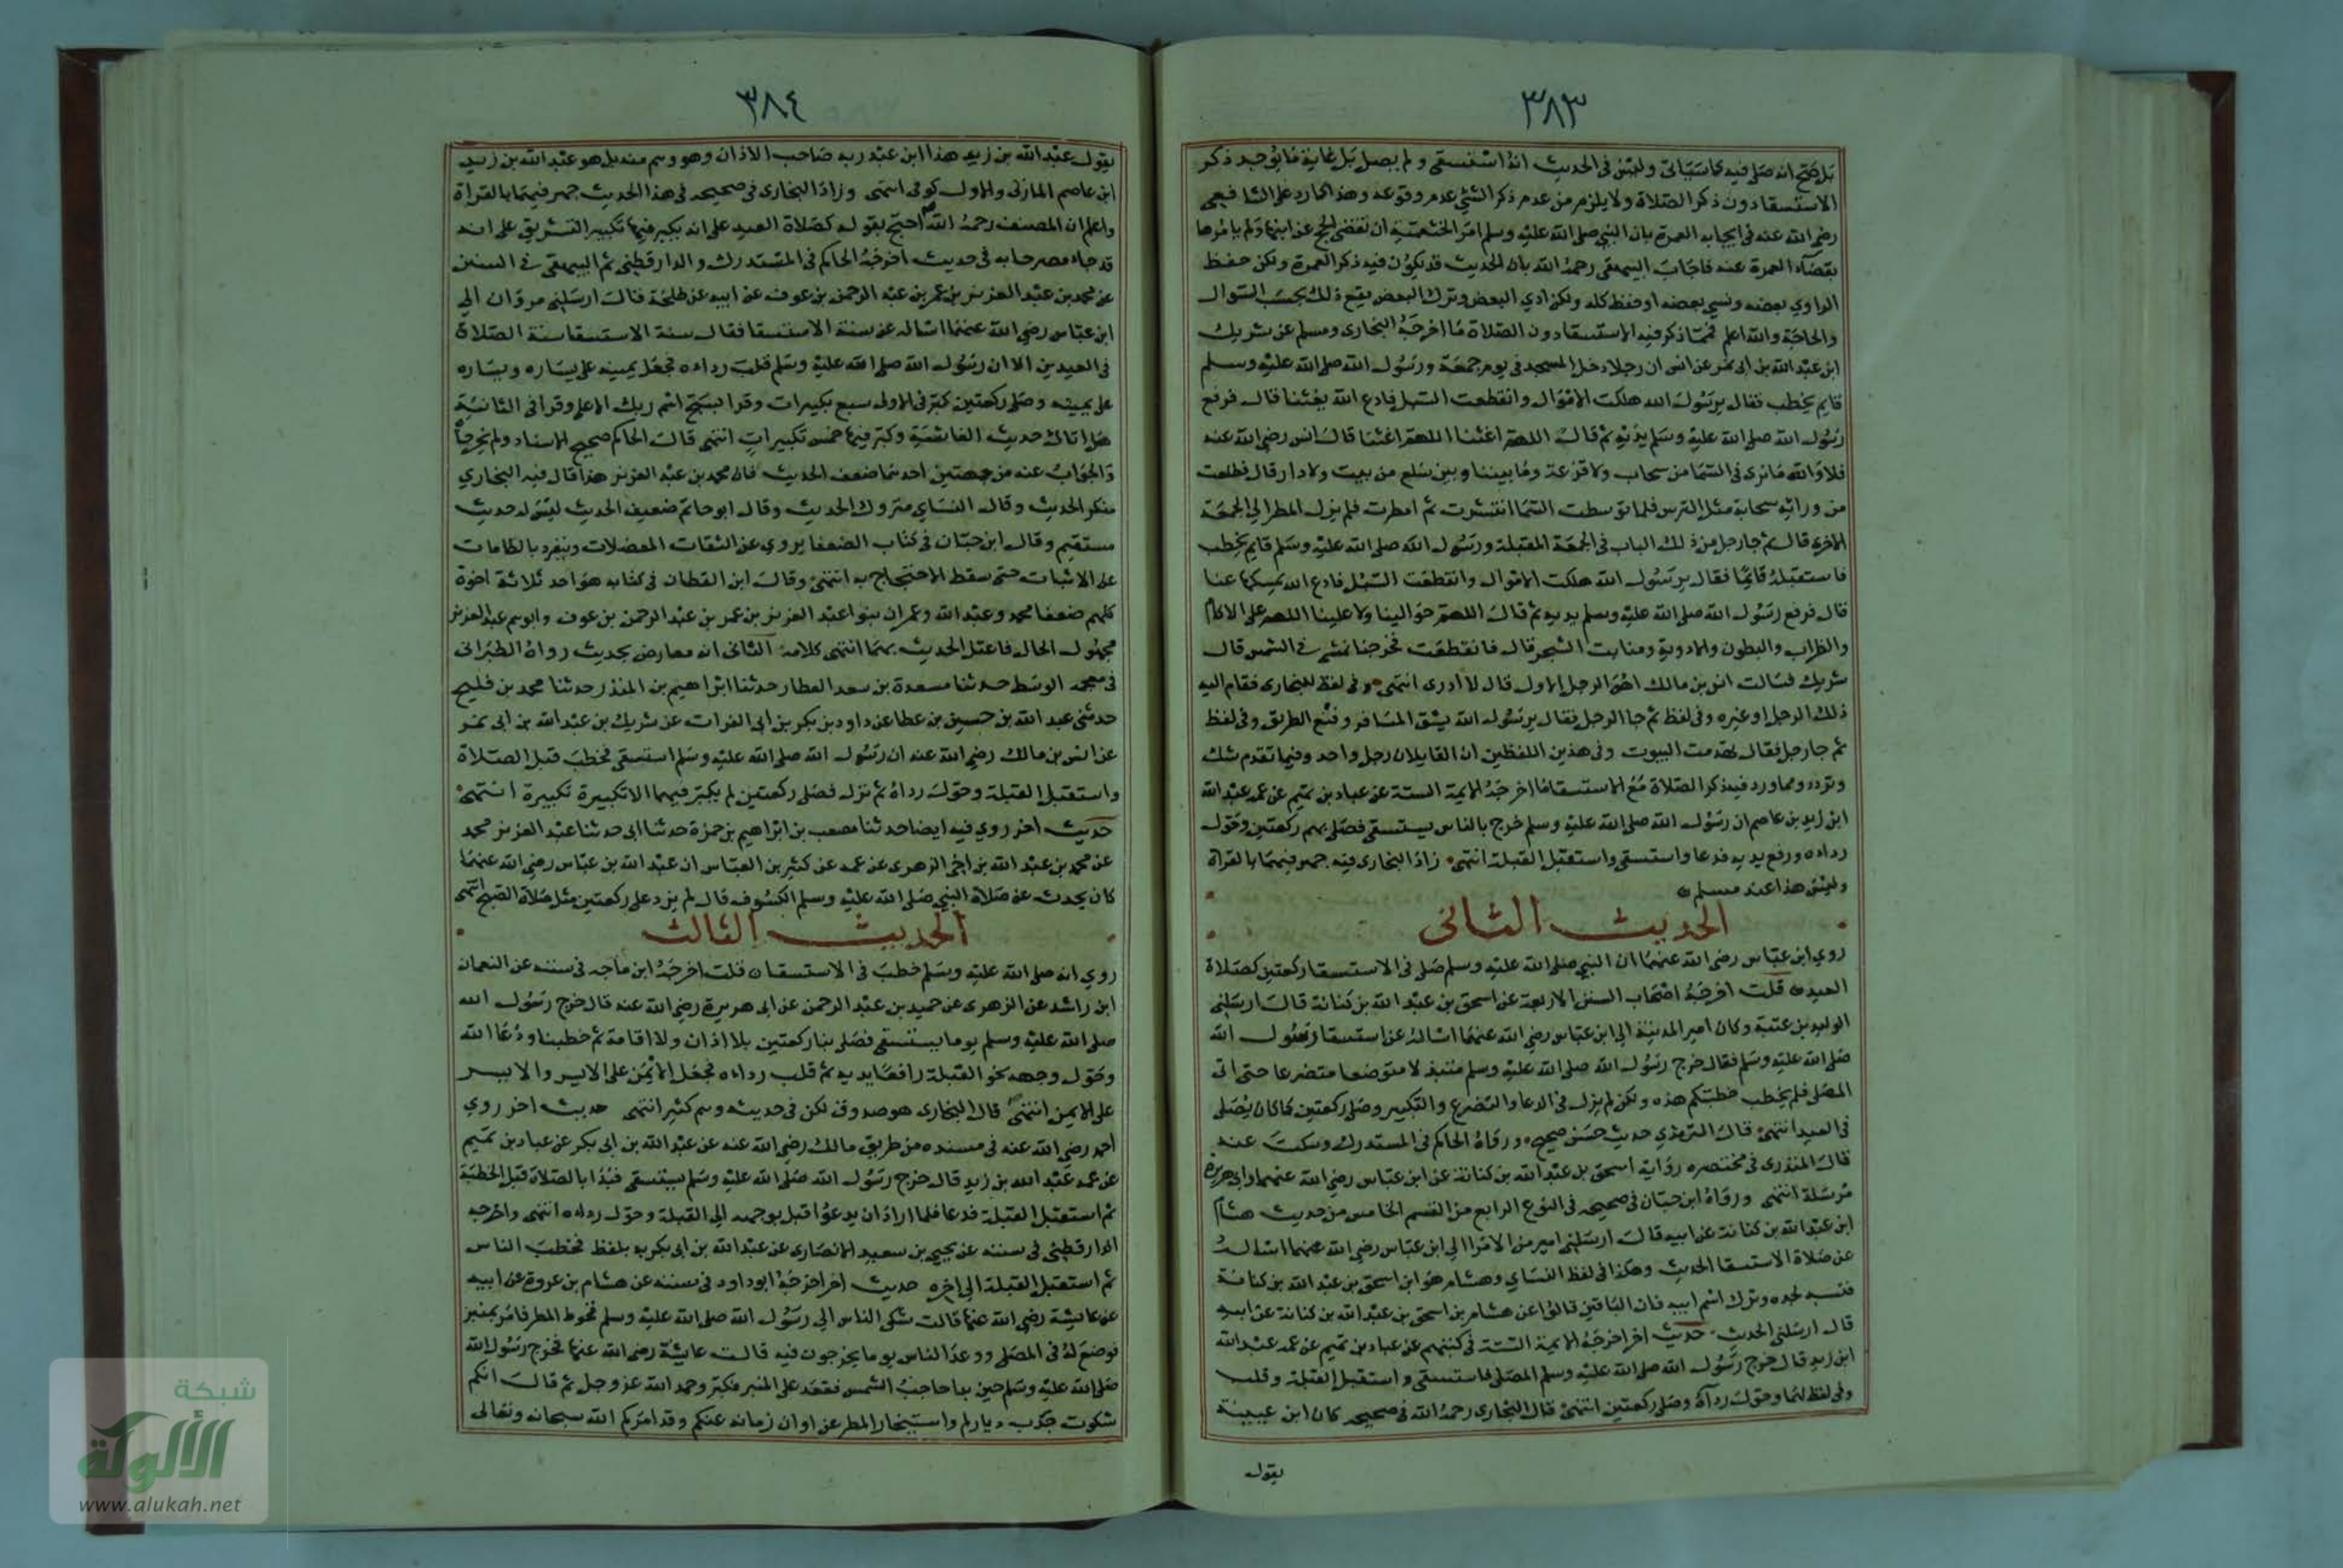 ٣٨٣
بل صح انه صلى فيه كما سياتى وليس فى الحديث انه استسقى ولم يصل بل غاية ما يوجد ذكر
الاستسقا دون ذكر الصلاة ولا يلزم من عدم ذكر الشئ عدم وقوعه وهذا كما رد على الشافعى
رضى الله عنه فى ايجابه العمرة بان النبى صلى الله عليه وسلم امر الخثعمية ان تقضى الحج عن ابيها ولم يامرها
بقضاء العمرة عنه فاجاب البيهقى رحمه الله بان الحديث قد يكون فيه ذكر العمرة ولكن حفظ
الراوي بعضه ونسي بعضه او حفظ كله ولكن ادي البعض وترك البعض يقع ذلك بحسب السوال
والحاجة والله اعلم فمما ذكر فيه الاستسقا دون الصلاة ما اخرجه البخارى ومسلم عن شريك
ابن عبد الله بن ابى نمر عن انس ان رجلا دخل المسجد فى يوم جمعة ورسول الله صلى الله عليه وسلم
قايم يخطب فقال يرسول الله هلكت الاموال وانقطعت السبل فادع الله يغثنا قال فرفع
رسول الله صلى الله عليه وسلم يديه ثم قال اللهم اغثنا اللهم اغثنا قال انس رضى الله عنه
فلا والله ما نرى فى السما من سحاب ولا قزعة وما بيننا وبين سلع من بيت ولا دار قال فطلعت
من ورائه سحابة مثل الترس فلما توسطت السما انتشرت ثم امطرت فلم يزل المطر الى الجمعة
الاخرى قال ثم جا رجل من ذلك الباب فى الجمعة المقبلة ورسول الله صلى الله عليه وسلم قايم يخطب
فاستقبله قايما فقال يرسول الله هلكت الاموال وانقطعت السبل فادع الله يمسكها عنا
قال فرفع رسول الله صلى الله عليه وسلم يديه ثم قال اللهم حوالينا ولا علينا اللهم على الاكام
والظراب والبطون والاودية ومنابت الشجر قال فانقطعت فخرجنا نمشى فى الشمس قال
شريك فسالت انس بن مالك اهو الرجل الاول قال لا ادرى انتهى وفى لفظ للبخارى فقام اليه
ذلك الرجل او غيره وفى لفظ ثم جا الرجل فقال يرسول الله بشق المسافر ومنع الطريق وفى لفظ
ثم جا رجل فقال تهدمت البيوت وفى هذين اللفظين ان القايلان رجل واحد وفيما تقدم شك
وتردد ومما ورد فيه ذكر الصلاة مع الاستسقا ما اخرجه الايمة الستة عن عباد بن تميم عن عمه عبد الله
ابن زيد بن عاصم ان رسول الله صلى الله عليه وسلم خرج بالناس يستسقى فصلى بهم ركعتين وحول
رداه ورفع يديه فدعا واستسقى واستقبل القبلة انتهى زاد البخارى فيه جهر فيهما بالقراة
وليس هذا عند مسلم
الحديث الثانى
روي ابن عباس رضى الله عنهما ان النبى صلى الله عليه وسلم صلى فى الاستسقا ركعتين كصلاة
العيد قلت اخرجه اصحاب السنن الاربعة عن اسحق بن عبد الله بن كنانة قال ارسلنى
الوليد بن عتبة وكان امير المدينة الى ابن عباس رضى الله عنهما اساله عن استسقا رسول الله
صلى الله عليه وسلم فقال خرج رسول الله صلى الله عليه وسلم متبذلا متوضعا متضرعا حتى اتى
المصلى فلم يخطب خطبتكم هذه ولكن لم يزل فى الدعا والتضرع والتكبير وصلى ركعتين كما كان يصلى
فى العيد انتهى قال الترمذي حديث حسن صحيح ورواه الحاكم فى المستدرك وسكت عنه
قال المنذرى فى مختصره رواية اسحق بن عبد الله بن كنانة عن ابن عباس رضى الله عنهما وابى هريرة
مرسلة انتهى ورواه ابن حبان فى صحيحه فى النوع الرابع من القسم الخامس من حديث هشام
ابن عبد الله بن كنانة عن ابيه قال ارسلنى امير من الامرا الى ابن عباس رضى الله عنهما اساله
عن صلاة الاستسقا الحديث وهكذا فى لفظ النساي وهشام هو ابن اسحق بن عبد الله بن كنانة
فنسبه لجده وترك اسم ابيه فان الباقين قالوا عن هشام بن اسحق بن عبد الله بن كنانة عن ابيه
قال ارسلنى الحديث حديث اخر اخرجه الايمة الستة فى كتبهم عن عباد بن تميم عن عمه عبد الله
ابن زيد قال خرج رسول الله صلى الله عليه وسلم الى المصلى فاستسقى واستقبل القبلة وقلب
وفى لفظ لهما وحول رداه وصلى ركعتين انتهى قال البخارى رحمه الله فى صحيحه كان ابن عيينة
يقول
٣٨٤
يقول عبد الله بن زيد هذا ابن عبد ربه صاحب الاذان وهو وهم منه بل هو عبد الله بن زيد
ابن عاصم المازنى والاول كوفى انتهى وزاد البخارى فى صحيحه فى هذا الحديث جهر فيهما بالقراة
واعلم ان المصنف رحمه الله احتج بقوله كصلاة العيد على انه يكبر فيها تكبير التشريق على انه
قد جاء مصرحا به فى حديث اخرجه الحاكم فى المستدرك والدارقطنى ثم البيهقى فى السنن
عن محمد بن عبد العزيز بن عمر بن عبد الرحمن بن عوف عن ابيه عن طلحة قال ارسلنى مروان الى
ابن عباس رضى الله عنهما اساله عن سنة الاستسقا فقال سنة الاستسقا سنة الصلاة
فى العيدين الا ان رسول الله صلى الله عليه وسلم قلب رداءه فجعل يمينه على يساره ويساره
على يمينه وصلى ركعتين كبر فى الاولى سبع تكبيرات وقرا بسبح اسم ربك الاعلى وقرا فى الثانية
هل اتاك حديث الغاشية وكبر فيها خمس تكبيرات انتهى قال الحاكم صحيح الاسناد ولم يخرجاه
والجواب عنه من جهتين احدهما ضعف الحديث فان محمد بن عبد العزيز هذا قال فيه البخاري
منكر الحديث وقال النساي متروك الحديث وقال ابو حاتم ضعيف الحديث ليس له حديث
مستقيم وقال ابن حبان فى كتاب الضعفا يروي عن الثقات المعضلات وينفرد بالطامات
على الاثبات حتى سقط الاحتجاج به انتهى وقال ابن القطان فى كتابه هو احد ثلاثة اخوة
كلهم ضعفا محمد وعبد الله وعمران بنوا عبد العزيز بن عمر بن عبد الرحمن بن عوف وابوهم عبد العزيز
مجهول الحال فاعتل الحديث بهما انتهى كلامه الثانى انه معارض بحديث رواه الطبرانى
فى معجمه الوسط حدثنا مسعدة بن سعد العطار حدثنا ابراهيم بن المنذر حدثنا محمد بن فليح
حدثنى عبد الله بن حسين بن عطا عن داود بن بكر بن ابى الفرات عن شريك بن عبد الله بن ابى نمر
عن انس بن مالك رضى الله عنه ان رسول الله صلى الله عليه وسلم استسقى فخطب قبل الصلاة
واستقبل القبلة وحول رداه ثم نزل فصلى ركعتين لم يكبر فيهما الا تكبيرة تكبيرة انتهى
حديث اخر روي فيه ايضا حدثنا مصعب بن ابراهيم بن حمزة حدثنا ابى حدثنا عبد العزيز محمد
عن محمد بن عبد الله بن اخى الزهرى عن عمه عن كثير بن العباس ان عبد الله بن عباس رضى الله عنهما
كان يحدث عن صلاة النبى صلى الله عليه وسلم الكسوف قال لم يزد على ركعتين مثل صلاة الصبح انتهى
الحديث الثالث
روي انه صلى الله عليه وسلم خطب فى الاستسقا قلت اخرجه ابن ماجه فى سننه عن النعمان
ابن راشد عن الزهرى عن حميد بن عبد الرحمن عن ابى هريرة رضى الله عنه قال خرج رسول الله
صلى الله عليه وسلم يوما يستسقى فصلى بنا ركعتين بلا اذان ولا اقامة ثم خطبنا ودعا الله
وحول وجهه نحو القبلة رافعا يديه ثم قلب رداءه فجعل الايمن على الايسر والايسر
على الايمن انتهى قال البخارى هو صدوق لكن فى حديثه وهم كثير انتهى حديث اخر روي
احمد رضى الله عنه فى مسنده من طريق مالك رضى الله عنه عن عبد الله بن ابى بكر عن عباد بن تميم
عن عمه عبد الله بن زيد قال خرج رسول الله صلى الله عليه وسلم يستسقى فبدا بالصلاة قبل الخطبة
ثم استقبل القبلة فدعا فلما اراد ان يدعوا قبل بوجهه الى القبلة وحول رداءه انتهى واخرجه
الدارقطنى فى سننه عن يحيى بن سعيد الانصارى عن عبد الله بن ابى بكر به بلفظ فخطب الناس
ثم استقبل القبلة الى اخره حديث اخر اخرجه ابو داود فى سننه عن هشام بن عروة عن ابيه
عن عايشة رضى الله عنها قالت شكى الناس الى رسول الله صلى الله عليه وسلم قحوط المطر فامر بمنبر
فوضع له فى المصلى ووعد الناس يوما يخرجون فيه قالت عايشة رضى الله عنها فخرج رسول الله
صلى الله عليه وسلم حين بدا حاجب الشمس فقعد على المنبر فكبر وحمد الله عز وجل ثم قال انكم
شكوت جدب دياركم واستيخار المطر عن اوان زمانه عنكم وقد امركم الله سبحانه وتعالى
شبكة
الألوكة
www.alukah.net